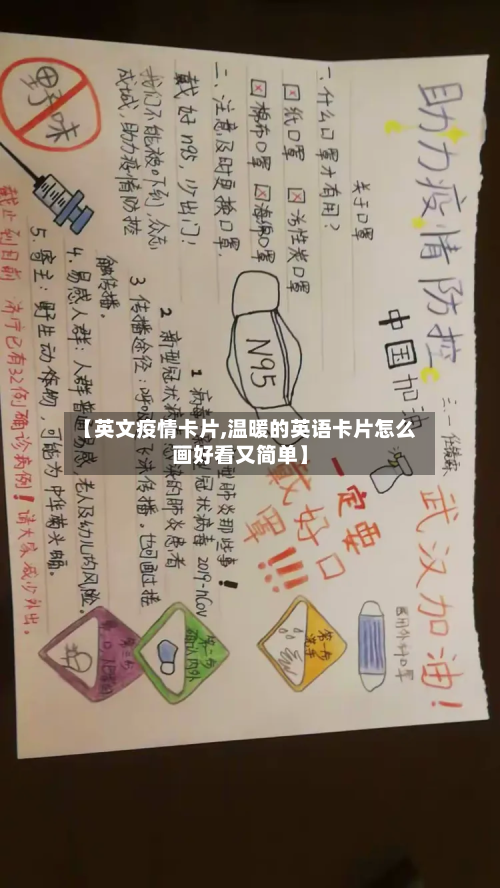 助力疫情防控
中国加油
武汉加油!
三.一
关于口罩
一.什么口罩才有用?
纸口罩
活性炭口罩
棉布口罩
海绵口罩
二.注意及时更换口罩.
戴好n95,少出门!
我们不能被吓到,众志
成城,助力疫情防控
野味
N95
一定要
戴好口
罩!!!
医用外科口罩
第一步
洗手
第二步
第三步
1 病毒
型肺炎那些事!
冠状病毒 2019-nCov
2 新型冠状病
染的肺炎患者
3 传播途径:呼吸
飞沫传播。也可通过接
触传播.
4.易感人群:人群普遍易感,老人及幼儿均风险。
5.寄主:野生动物,可能为中华菊头蝠。
截止到目前 济宁已有32例确诊病例!请大家减少外出。
【英文疫情卡片,温暖的英语卡片怎么
画好看又简单】